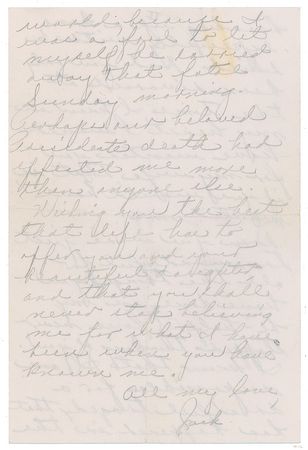 world, because I
was a fool to let
myself be carried
away that fatal
Sunday morning.
Perhaps our beloved
Presidents death had
effected me more
than anyone else.
Wishing you the best
that life has to
offer you and your
beautiful daughter
and that you shall
never stop believing
me for what I have
been when you have
known me.
All my love,
Jack